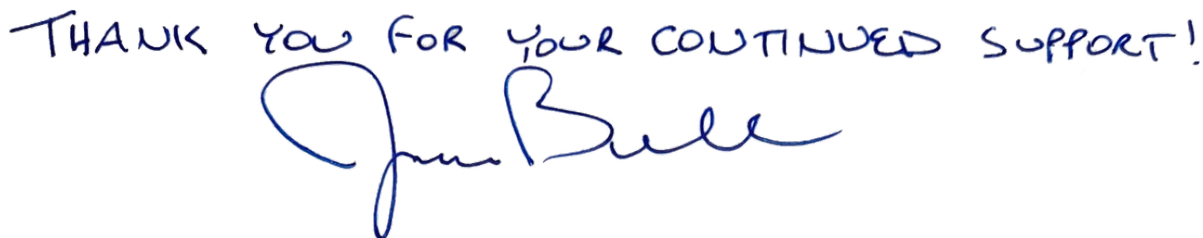 THANK YOU FOR YOUR CONTINUED SUPPORT!